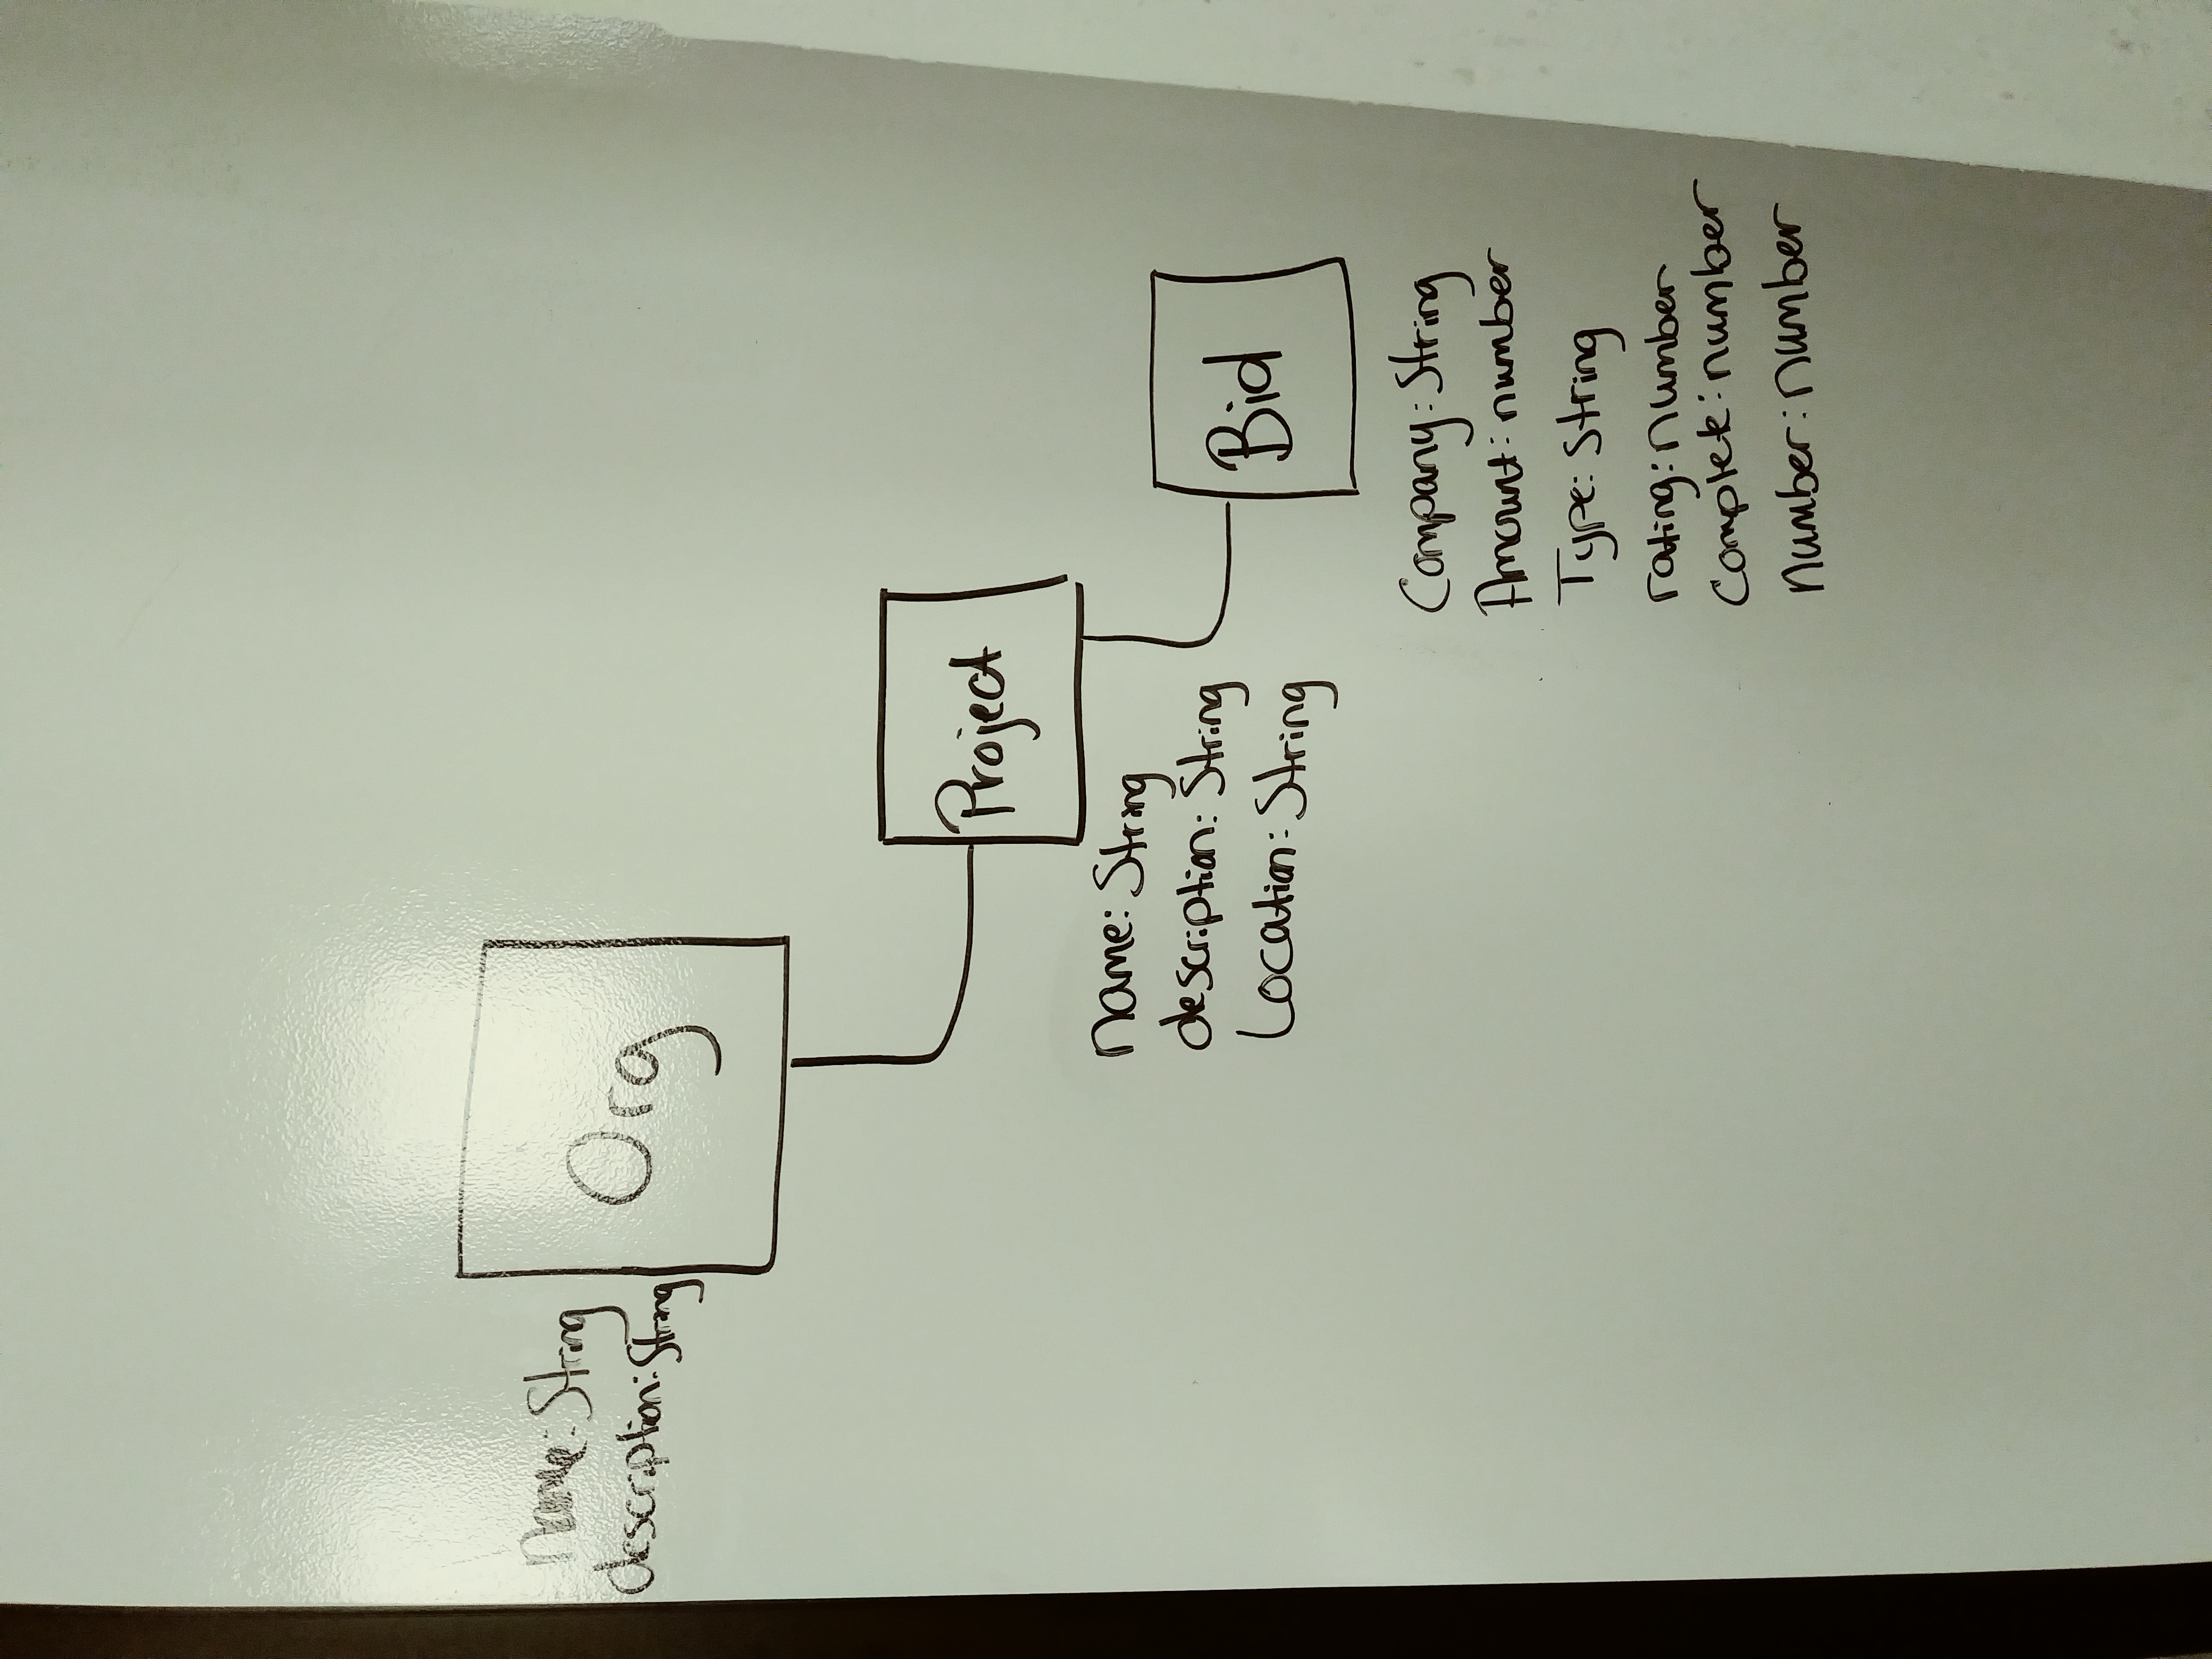 name: String
description: String
Org
Project
name: String
description: String
Location: String
Bid
Company: String
Amount: number
Type: String
rating: number
Complete: number
number: number